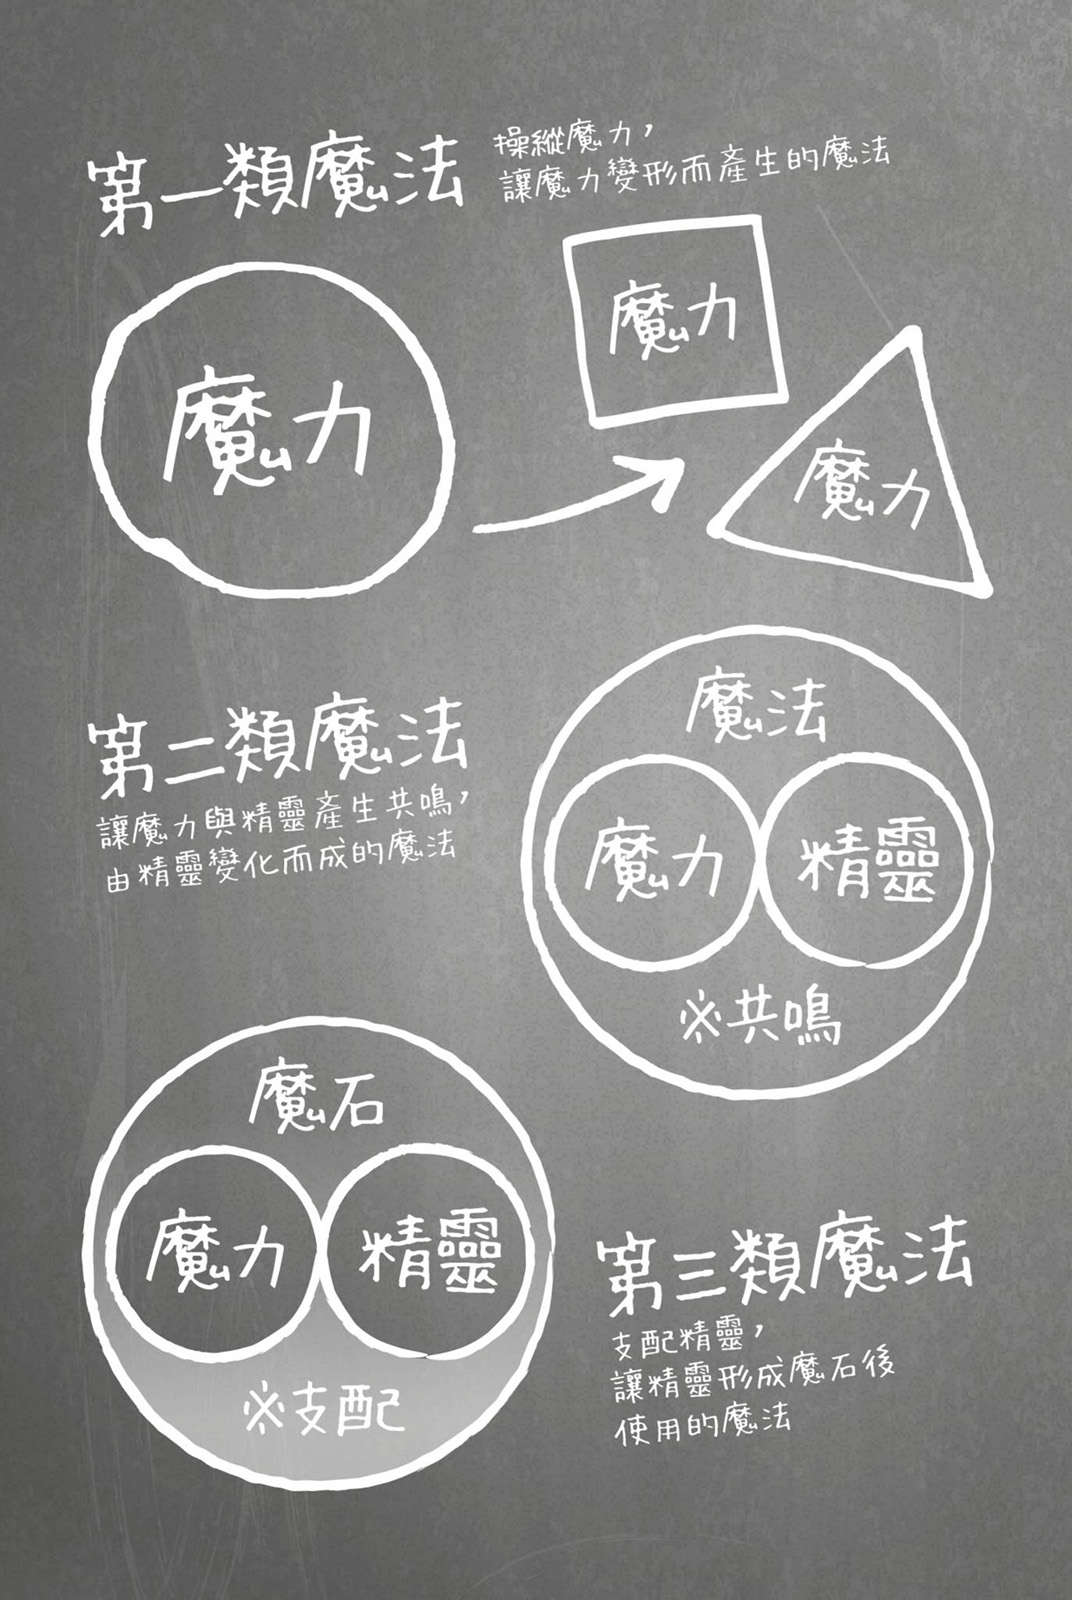 第一類魔法
操縱魔力，
讓魔力變形而產生的魔法
魔力
魔力
魔力
第二類魔法
讓魔力與精靈產生共鳴，
由精靈變化而成的魔法
魔法
魔力
精靈
※共鳴
魔石
魔力
精靈
※支配
第三類魔法
支配精靈，
讓精靈形成魔石後
使用的魔法